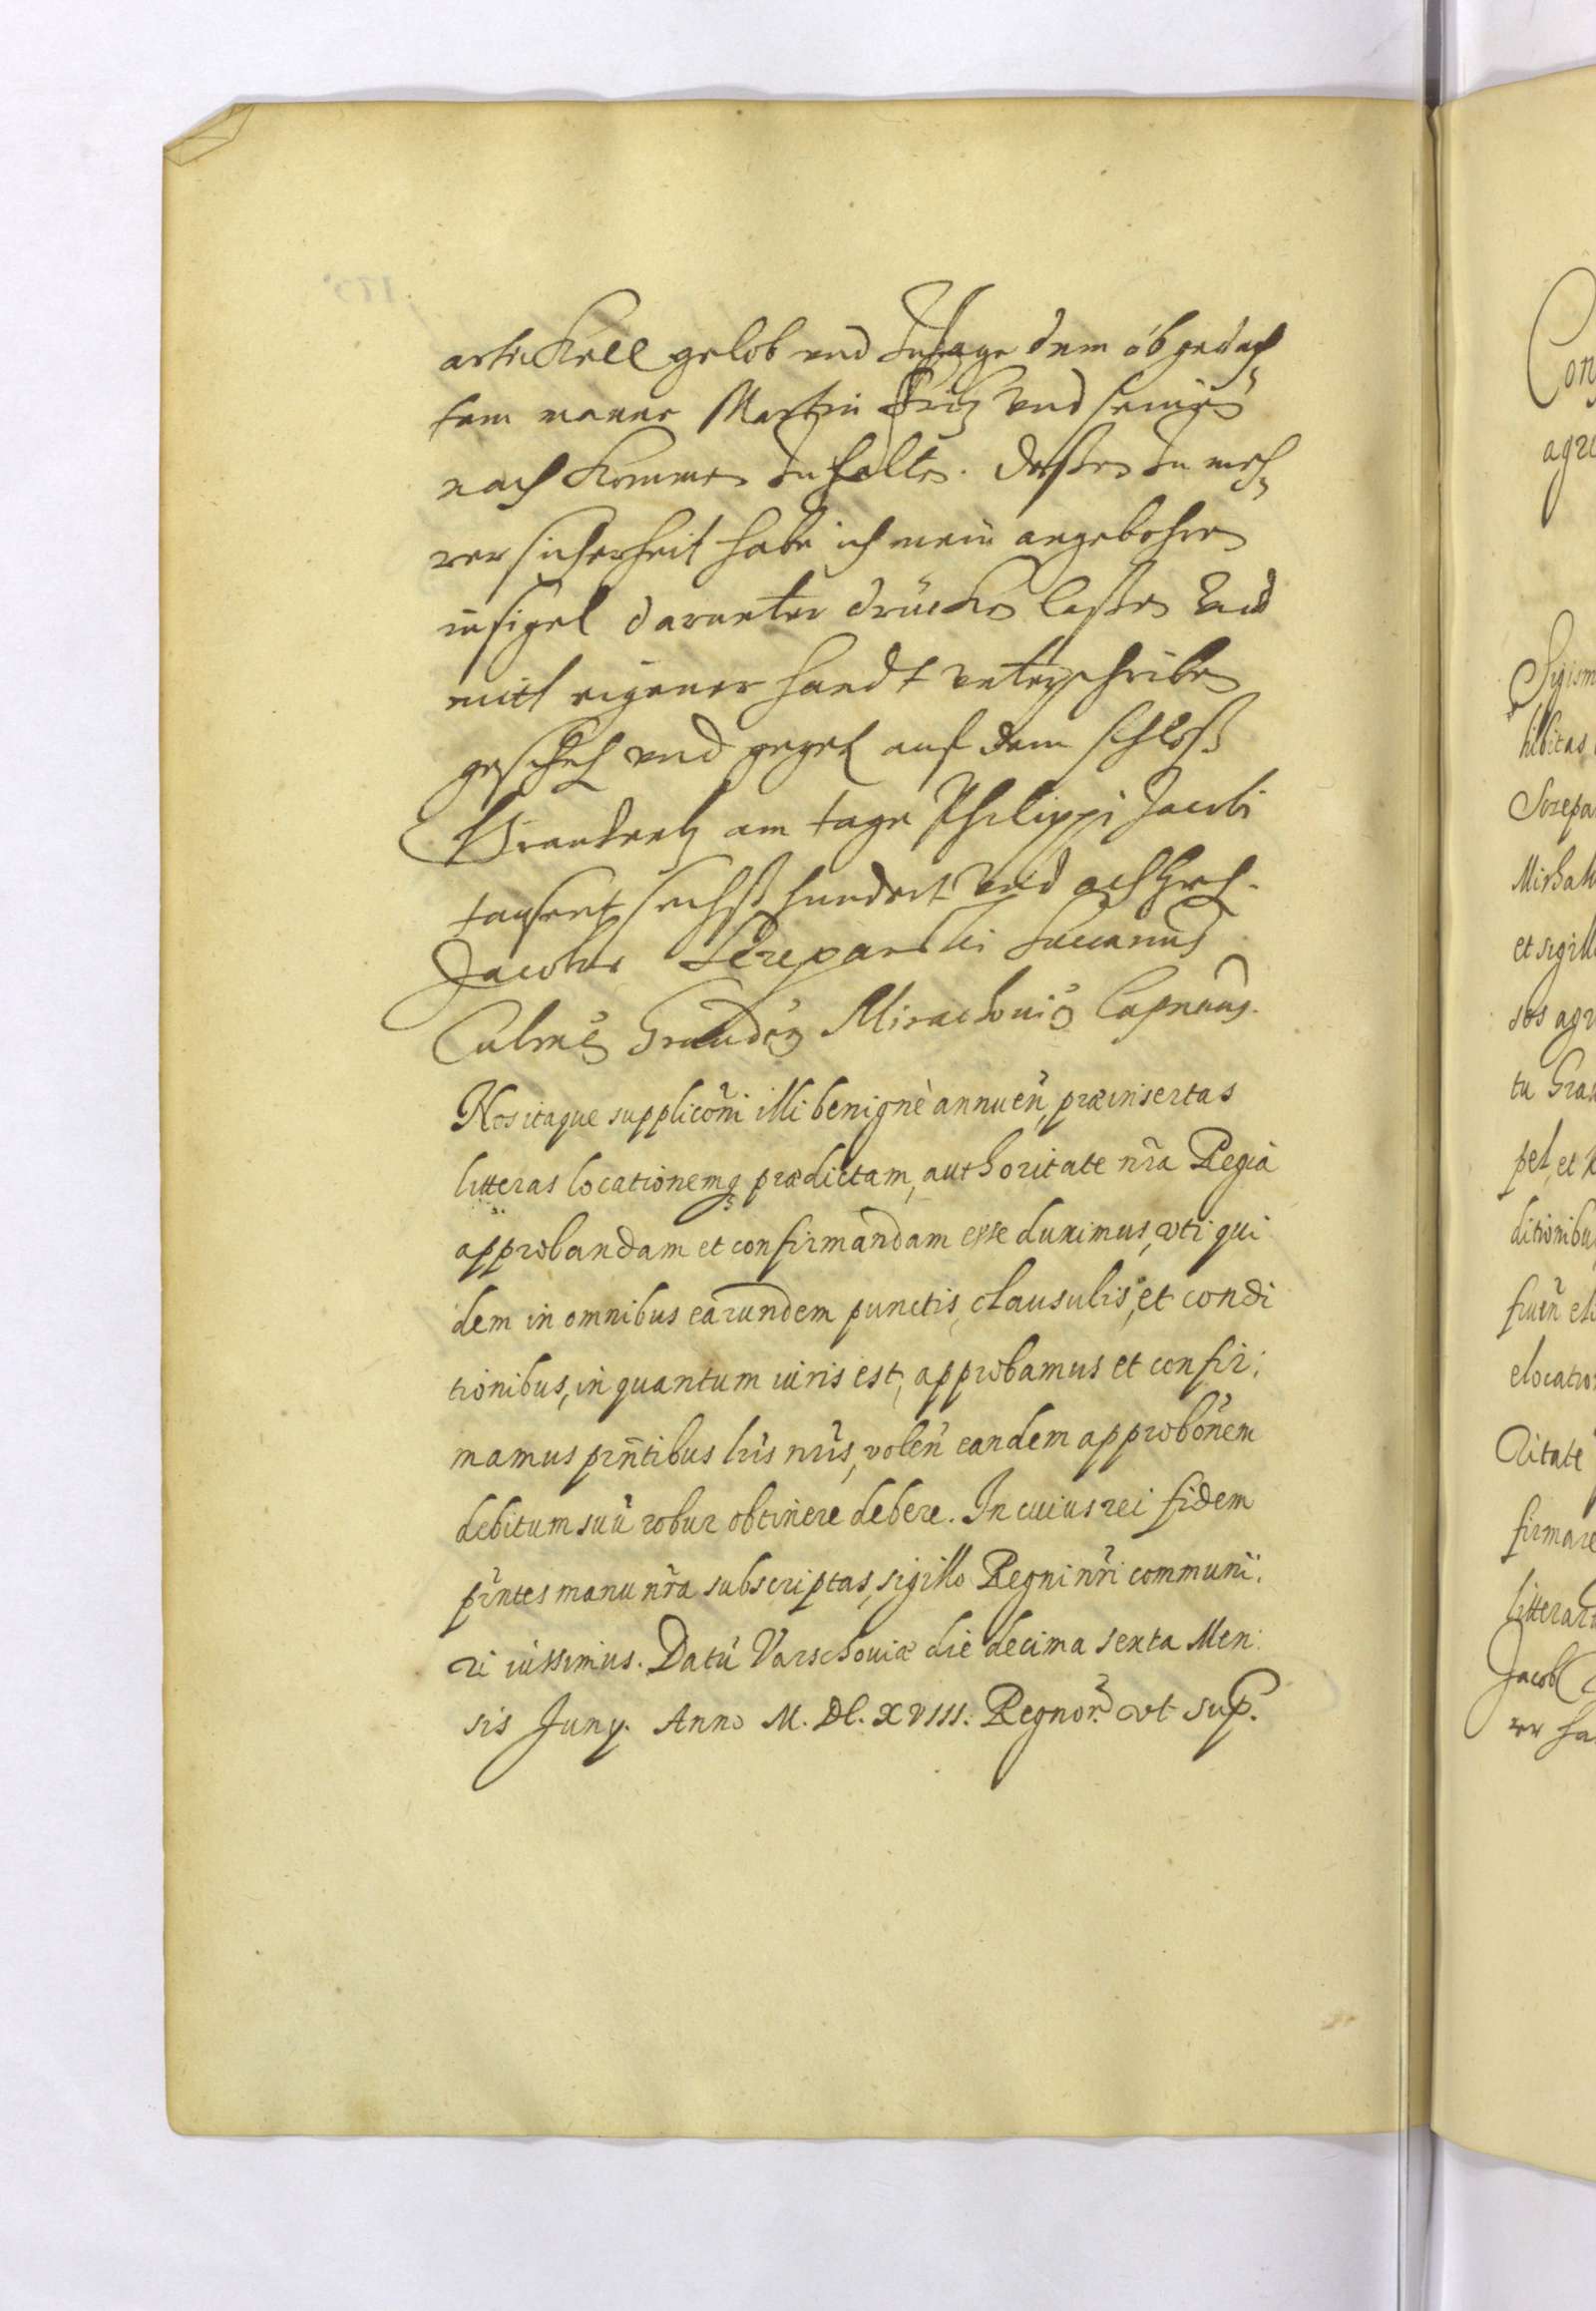 artickell gelob und zusage dem obgedach
tem manne Martin Fritz und seinen
nachkommen zuhalten. dessen zu meh
rer sicherheit habe ich mein angebohren
insigel darunter drücken lassen und
mitt eigener handt unterschriben
gescheh und gegeb auf dem schloss
Graudentz am tage Philippi Jacobi
tausent sechss hundert und achtzeh.
Jacobus Sczepanski Succamer
Culmen Grauden Mirachovien Capneus.
Nos itaque supplicõni illi benignè annueñ, præinsertas
litteras locationemq prædictam, authoritate nřa Regia
approbandam et confirmandam esse duximus, vti qui
dem in omnibus earundem punctis, clausulis, et condi
tionibus, in quantum iuris est, approbamus et confir:
mamus prñtibus lris nris, voleñ eandem approbõnem
debitum suũ robur obtinere debere. In cuius rei fidem
prntes manu nřa subscriptas, sigillo Regni nři communi:
ri iussimus. Datũ Varschoviæ die decima sexta Men:
sis Juny. Anno M. DC. XVIII. Regnor. vt sup.
Con
agre
Sigism
hibitas
Sczepa
Mirhaw
et sigill
sos agr
tu Grau
pet, et
ditionibu
frueñ el
elocatio
ritate
firmare
litterar
Jacob
rer ha